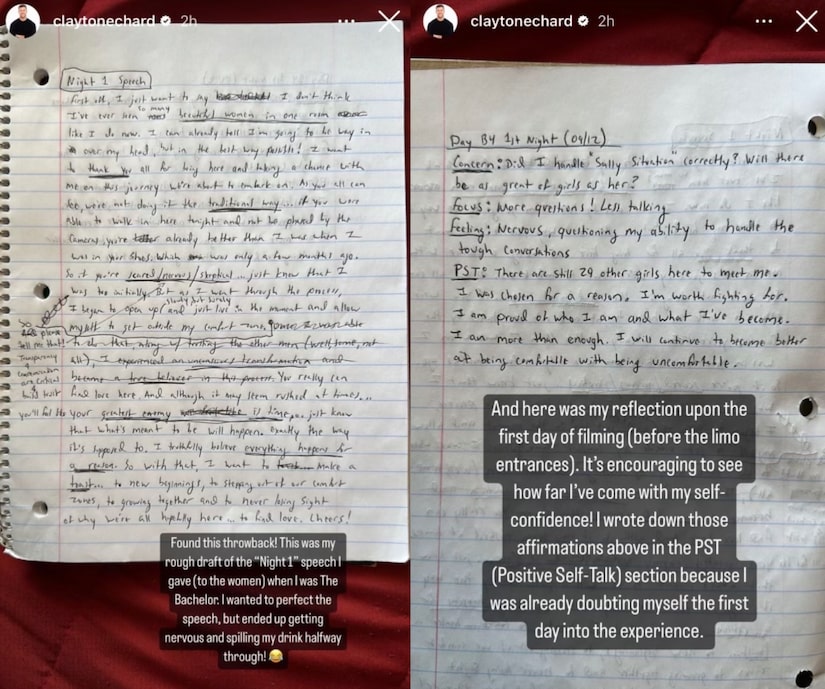 claytonechard 2h
Night 1 Speech
First off, I just want to say I don't think
I've ever seen so many beautiful women in one room
like I do now. I can already tell I'm going to be way in
over my head, but in the best way possible! I want
to thank you all for being here and taking a chance with
me on this journey we're about to embark on. As you all can
see, we're not doing it the traditional way... if you were
able to walk in here tonight and not be phased by the
cameras, you're already better than I was when I
was in your shoes. Which was only a few months ago.
So if you're scared/nervous/skeptical... just know that I
was too initially. But as I went through the process,
I began to open up (slowly but surely) and just live in the moment and allow
myself to get outside my comfort zone.
So please tell me that! Transparency communication are critical build trust
to do that, along w/ trusting the other men (well, some, not
all), I experienced an transformation and
became a true believer in this process. You really can
find love here. And although it may seem rushed at times...
you'll feel like your greatest enemy is time... just know
that what's meant to be will happen. Exactly the way
it's supposed to. I truthfully believe everything happens for
a reason. So with that, I want to make a
toast... to new beginnings, to stepping out of our comfort
zones, to growing together and to never losing sight
of why we're all hopefully here... to find love. Cheers!
Found this throwback! This was my
rough draft of the “Night 1” speech I
gave (to the women) when I was The
Bachelor. I wanted to perfect the
speech, but ended up getting
nervous and spilling my drink halfway
through! 😂
claytonechard 2h
Day B4 1st Night (09/12)
Concern: Did I handle "Sally Situation" correctly? Will there
be as great of girls as her?
Focus: More questions! Less talking
Feeling: Nervous, questioning my ability to handle the
tough conversations
PST: There are still 29 other girls here to meet me.
I was chosen for a reason. I'm worth fighting for.
I am proud of who I am and what I've become.
I am more than enough. I will continue to become better
at being comfortable with being uncomfortable.
And here was my reflection upon the
first day of filming (before the limo
entrances). It’s encouraging to see
how far I’ve come with my self-
confidence! I wrote down those
affirmations above in the PST
(Positive Self-Talk) section because I
was already doubting myself the first
day into the experience.